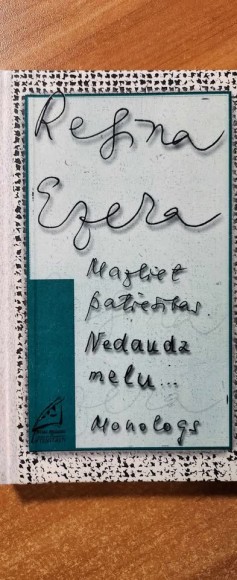 Regina
Ezera
Mazliet
patiesības.
Nedaudz
melu...
Monologs